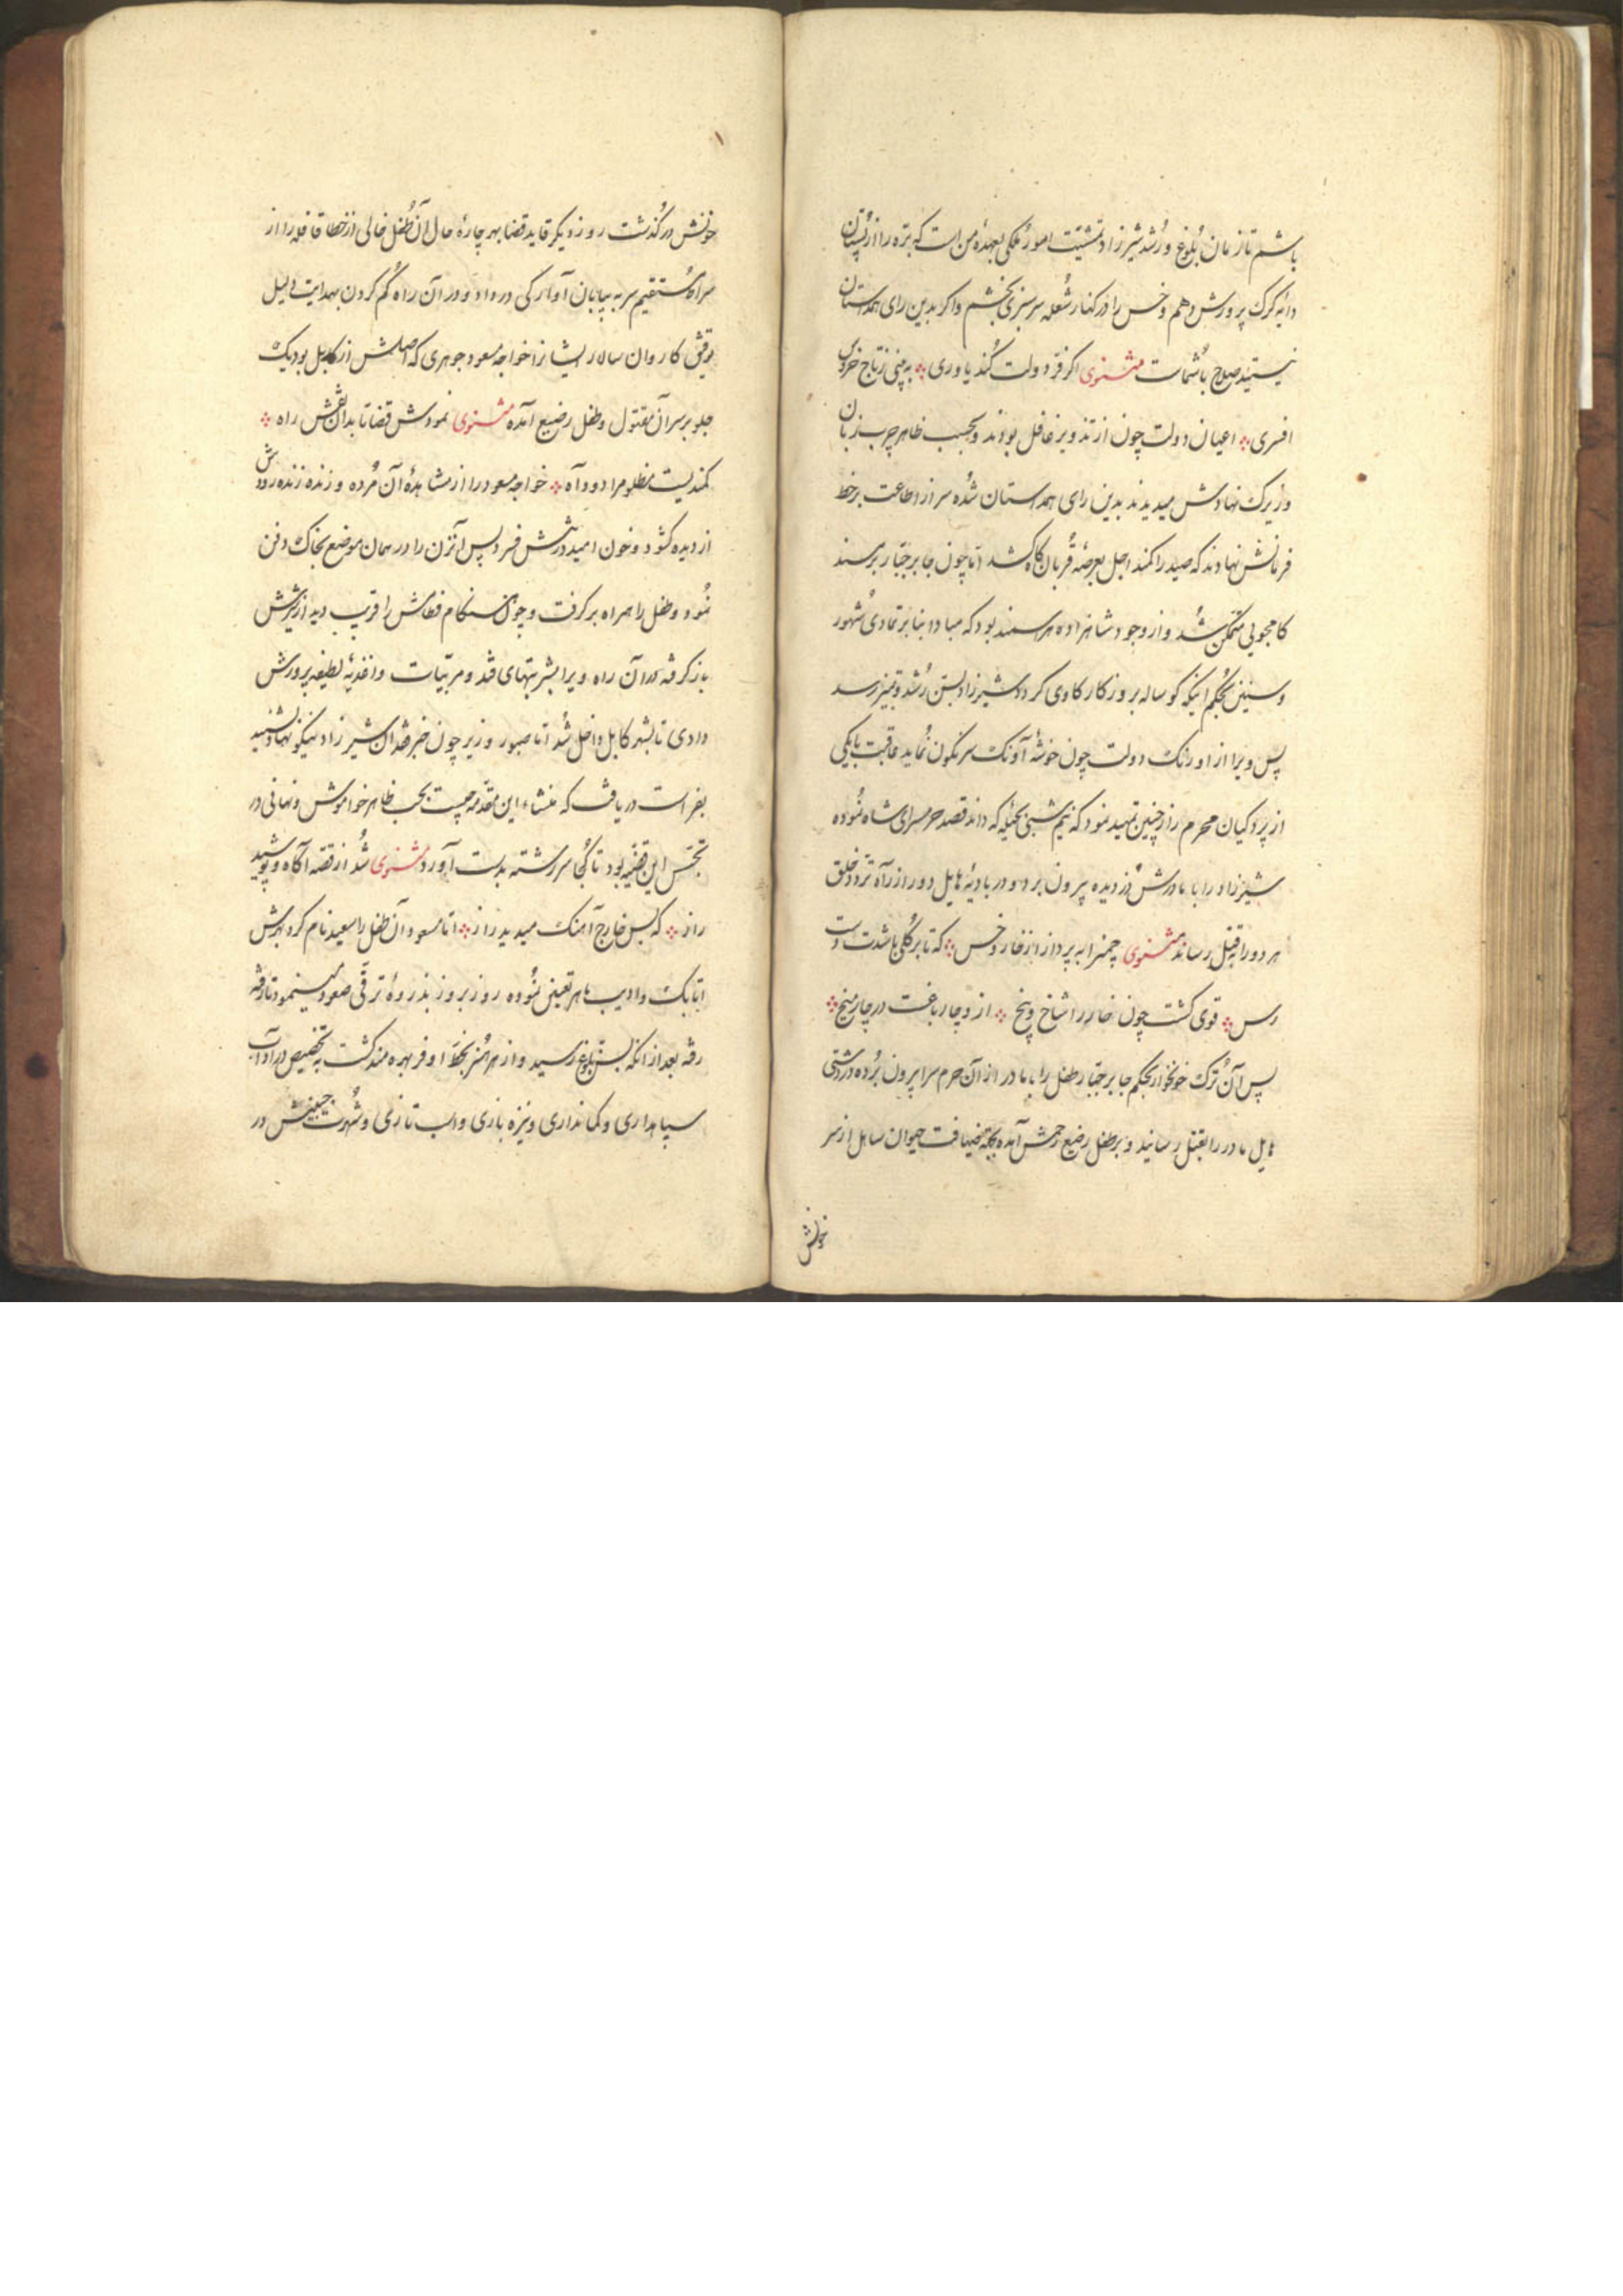 باشم تا زمان بُلوغ و رُشد شیرزاد تمشیّت امور مُلکی بعهدهٔ من است که برّه را از پستان
دایهٔ کرک پرورش دهم و خس را در کنار شُعله سرسبزی بخشم و اکر بدین رای همداستان
نیستید صلاح با شُماست مثنوی اکر فرّ دولت کُند یاوری ؞ به بینی ز تاج خری
افسری ؞ اعیان دولت چون از تذویر غافل بودند و بحسب ظاهر چرب زبان
و زیرک نهادش میدیدند بدین رای همداستان شُده سر از اطاعت بر خط
فرمانش نهادند که صید را کمند اجل بعرصهٔ قُربان کاه کشد امّا چون جابر جبّار بر مسند
کامجویی متمکّن شُد و از وجود شاهزاده هراسمند بود که مبادا بنا بر تمادی شُهور
و سنین بحُکم اینکه کوساله بروزکار کاوی کردد شیرزاد بسنّ رُشد و تمیز رسد
پس ویرا از اورنک دولت چون خوشهٔ آونک سرنکون نُماید عاقبت با یکی
از پردکیان محرم راز چنین تمهید نمود که نیم شبی بحیلهٔ که داند قصد حرمسرای شاه نُموده
شیرزاد را با مادرش دُزدیده بیرون برد و در بادیهٔ هایل دور از راه تردد خلق
هر دو را بقتل رساند مثنوی چمنرا بپرداز از خار و خس ؞ که تا بر کُلی باشدت دست
رس ؞ قوی کشت چون خار را شاخ و بیخ ؞ ازو چار باغست در چار میخ ؞
پس آن تُرک خونخوار بحکم جابر جبّار طفل را با مادر از آن حرم سرا بیرون بُرده در دشتی
هایل مادر را بقتل رسانید و بر طفل رضیع رحمش آمده بجهة ضیافت حیوان سایل از سر
خونش
خونش در کُذشت روز دیکر قاید قضا بهر چارهٔ حال آن طُفل خالی از خطا قافله را از
سراه مُستقیم سر به بیابان آوارکی در داد و در آن راه کُم کردن بهدایت دلیل
توفیق کاروان سالار ایشانرا خواجه مسعود جوهری که اصلش از کابل بود یک
جلو بر سر آن مقتول و طفل رضیع آمده مثنوی نمودش قضا تا بدان نقش راه ؞
کمندیست مظلومرا دود آه ؞ خواجه مسعود را از مشاهدهٔ آن مُرده و زنده زنده رودش
از دیده کشود و خون امید در تنش فسرد پس آنزن را در همان موضع بخاک دفن
نمُود و طفل را همراه بر کرفت و چون هنکام فطامش را قریب دید از شیرش
باز کرفته در آن راه ویرا بشربتهای قند و مربّیات و اغذیهٔ لطیفه پرورش
دادی تا بشهر کابل داخل شُد امّا صبور وزیر چون خبر فقدان شیرزاد نیکو نهاد شنید
بفراست دریافت که منشاء این مقدمه چیست بحسب ظاهر خواموش و نهانی در
تجسّس این قضیّه بود تا کُجا سر رشته بدست آورد مثنوی شُد از قصّه آکاه و پوشید
راز ؞ که بس خارج آهنک میدید راز ؞ امّا مسعود آن طفل را سعید نام کرد بهرش
اتابک و ادیب ماهر تعیین نمُوده روز بروز بذروهٔ ترقّی صعود مینمود تا رفته
رفته بعد از انکه بسنّ بلوغ رسید و از هر هُنر بحظّ اوفر بهره مند کشت به تخصیص در آداب
سپاهداری و کمانداری و نیزه بازی و اسب تازی و شُهرت جبینش در